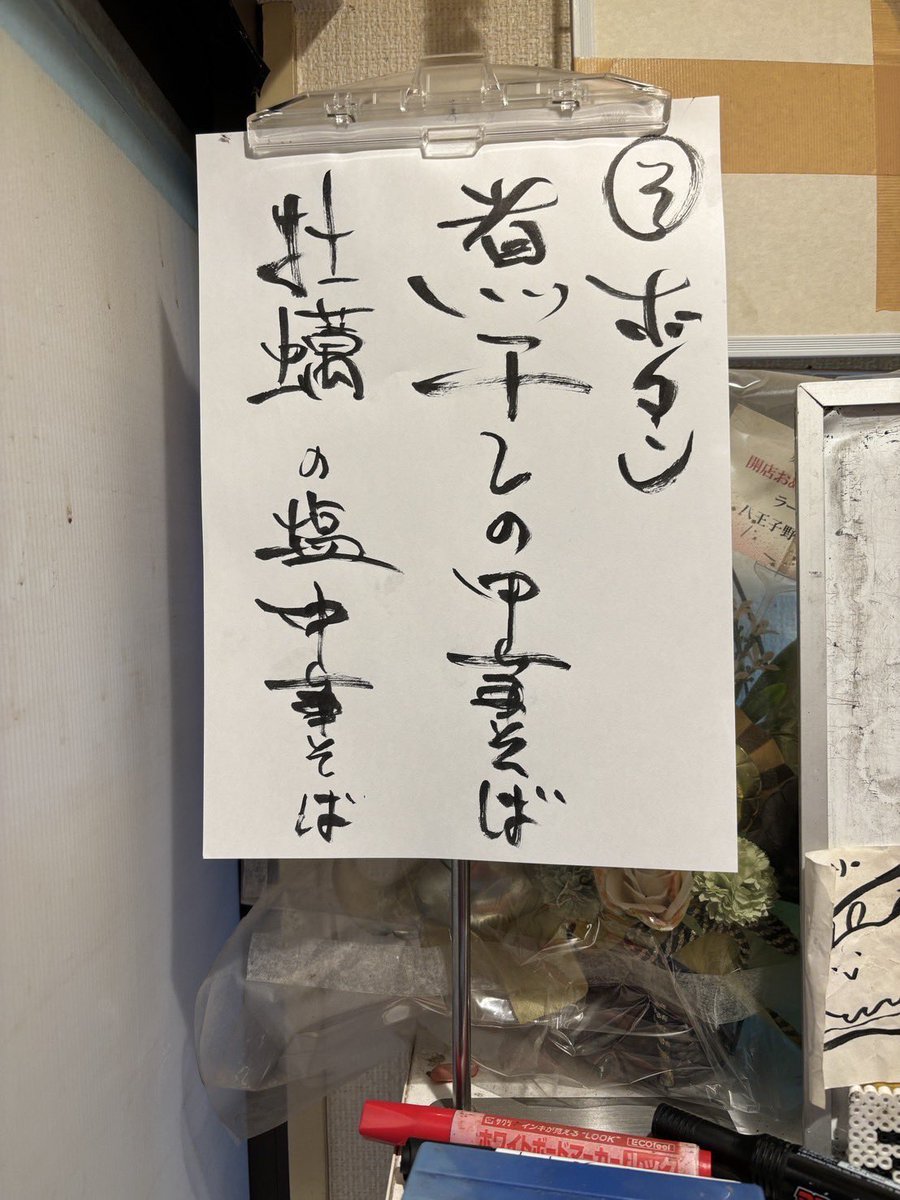 そ ボタン
煮干しの中華そば
牡蠣の塩中華そば
開店おめ
ラー
八王子野
サクラ インキが見える "LOOK" ECOfeel
ホワイトボードマーカー